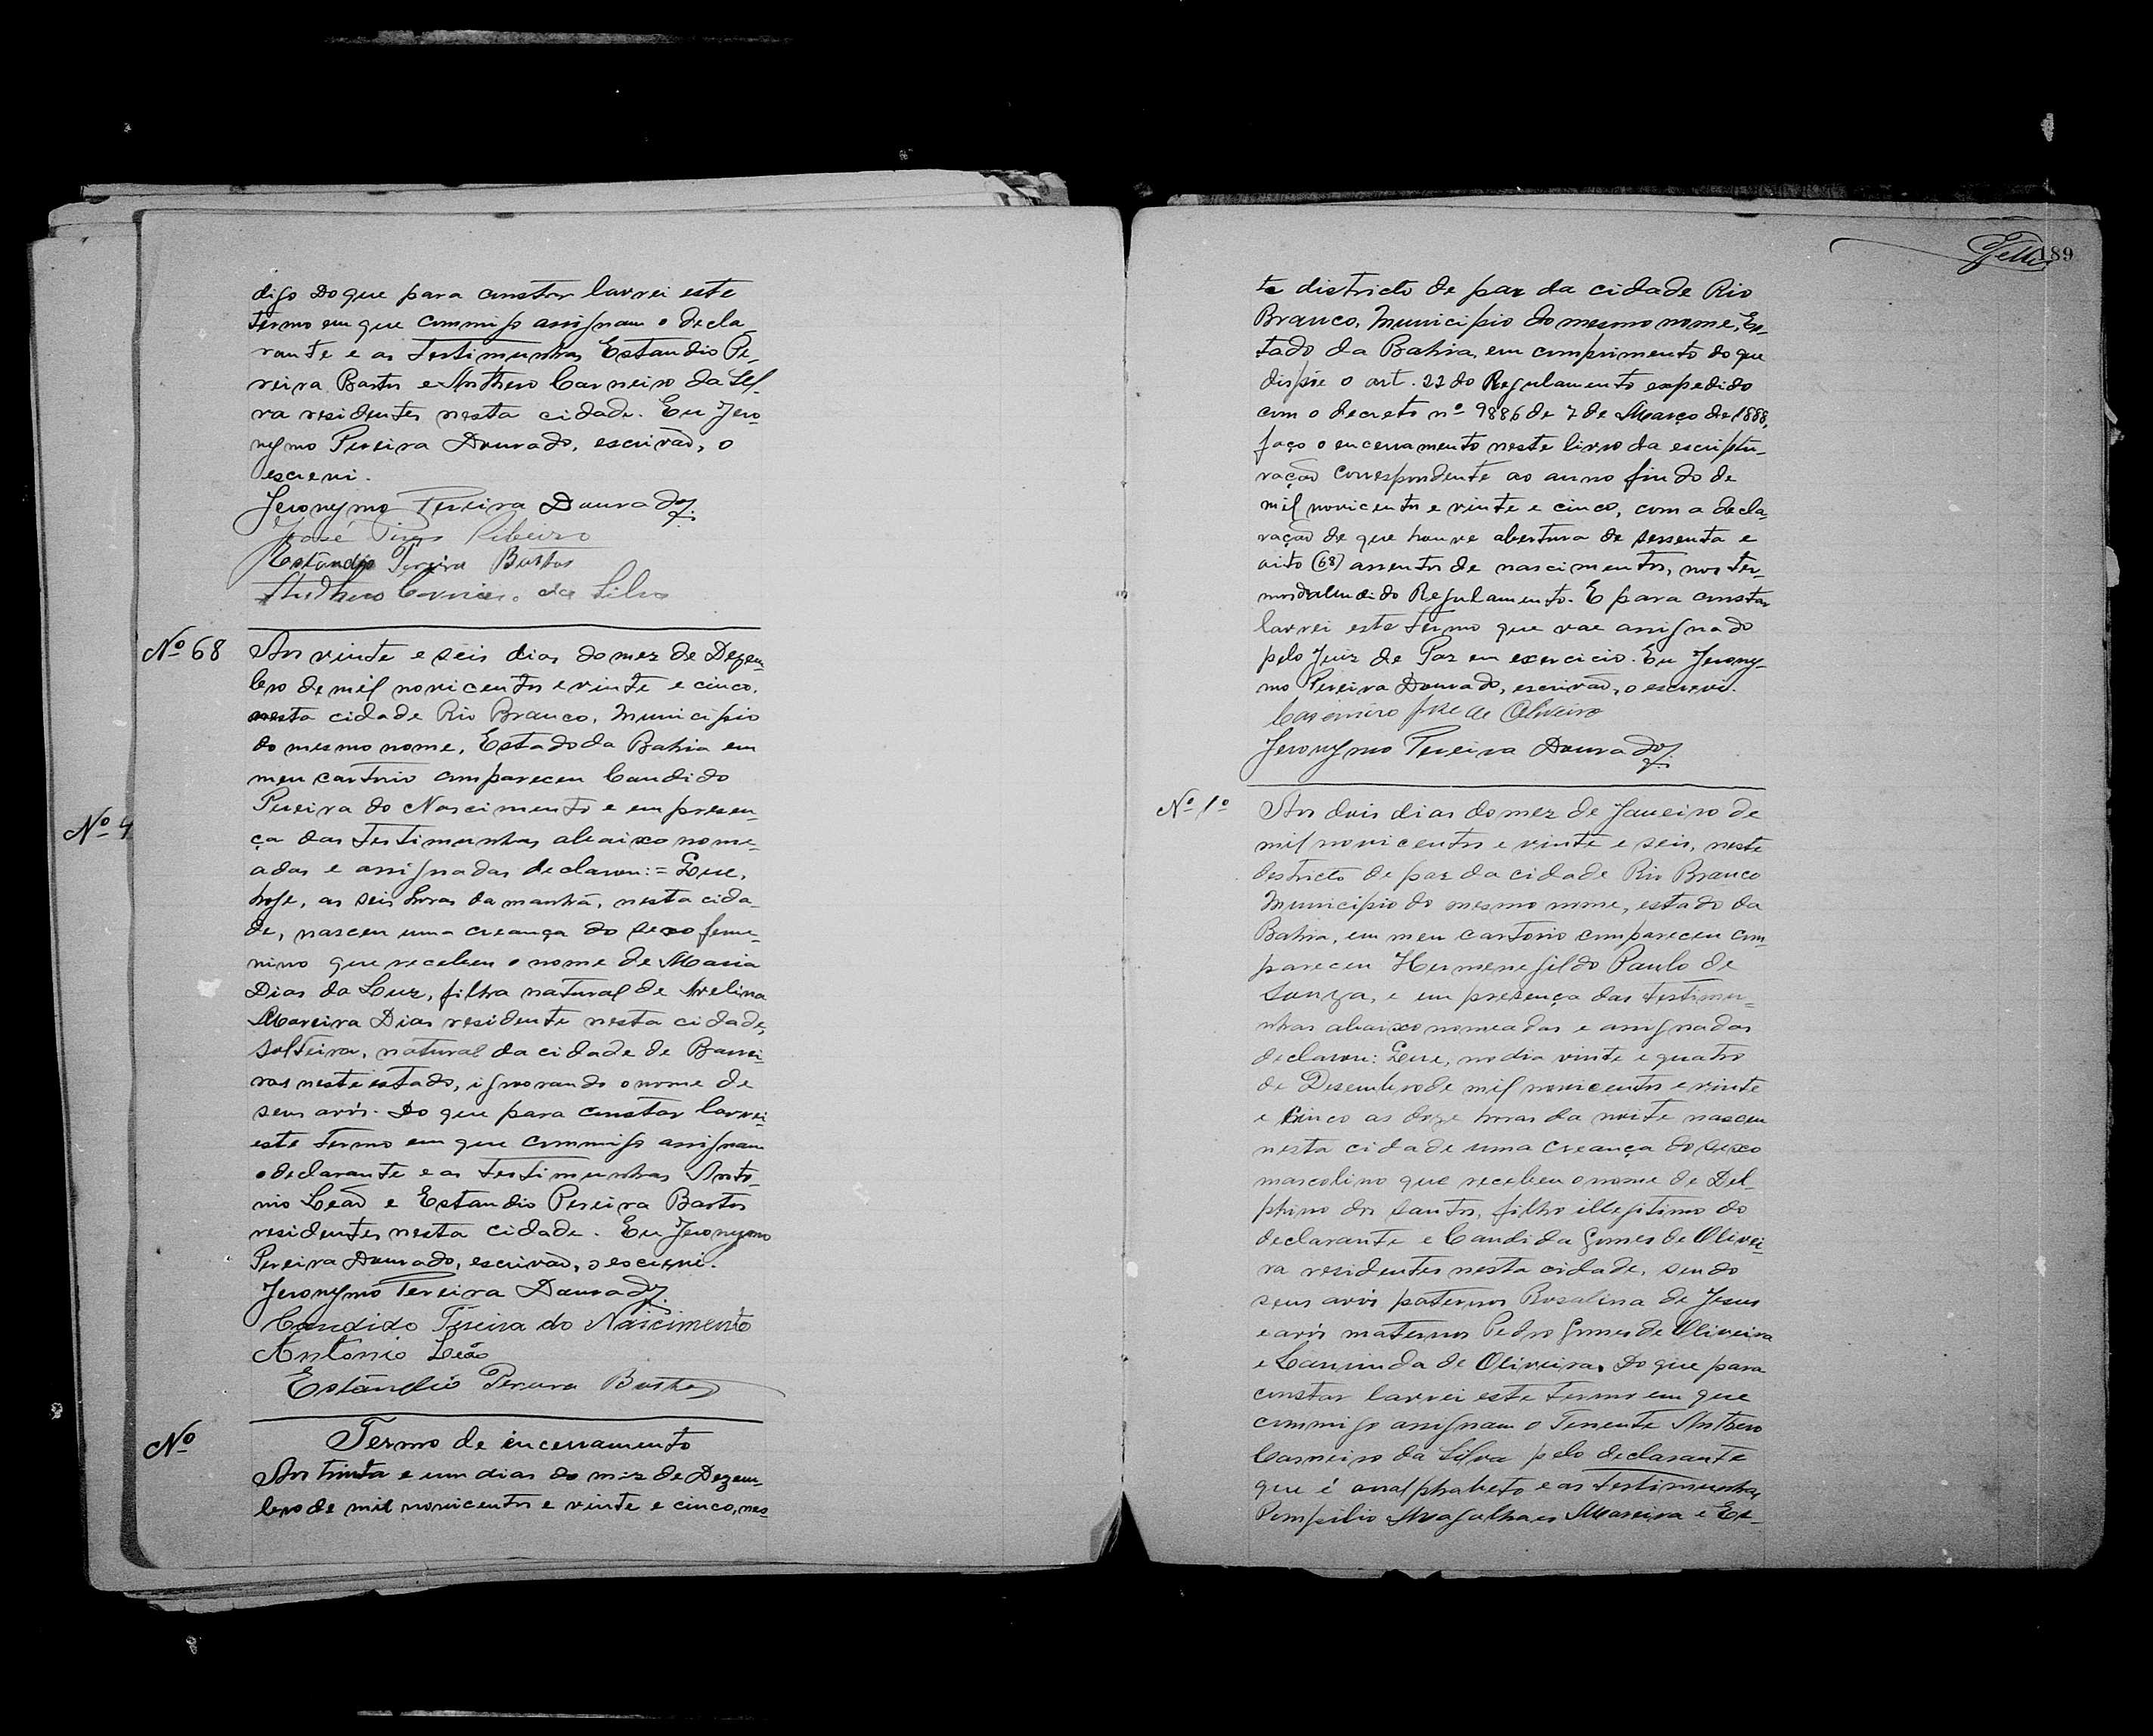 digo Do que para constar lavrei este
termo em que commigo assignam o decla-
rante e as testimunhas Estandio Pe-
reira Bastos e Anthero Carneiro da Sil-
va residentes nesta cidade. Eu Jero-
nymo Pereira Dourado, escrivão, o
escrevi.
Jeronymo Pereira Dourado
José Pires Ribeiro
Estândio Pereira Bastos
Anthero Carneiro da Silva
Nº 68
Aos vinte e seis dias do mez de Dezem-
bro de mil novicentos e vinte e cinco,
nesta cidade Rio Branco, Municipio
do mesmo nome, Estado da Bahia em
meu cartorio compareceu Candido
Pereira do Nascimento e em presen-
ça das testimunhas abaixo nome-
adas e assignadas declarou:= Que,
hoje, as seis horas da manhã, nesta cida-
de, nasceu uma creança do sexo feme-
nino que recebeu o nome de Maria
Dias da Luz, filha natural de Avelina
Moreira Dias residente nesta cidade,
solteira, natural da cidade de Barrei-
ras neste estado, ignorando o nome de
seus avós. Do que para constar lavrei
este termo em que commigo assignam
o declarante e as testimunhas Anto-
nio Leão e Estandio Pereira Bastos
residentes nesta cidade. Eu Jeronymo
Pereira Dourado, escrivão, o escrevi.
Jeronymo Pereira Dourado
Candido Pereira do Nascimento
Antonio Leão
Estândio Pereira Bastos
Nº 4
Nº
Termo de encerramento
Aos trinta e um dias do mez de Dezem-
bro de mil novicentos e vinte e cinco, nes-
189
te districto de paz da cidade Rio
Branco, Municipio do mesmo nome, Es-
tado da Bahia, em comprimento do que
dispõe o art. 22 do Regulamento expedido
com o decreto nº 9886 de 7 de Março de 1888,
faço o encerramento neste livro da escriptu-
ração correspondente ao anno findo de
mil novicentos e vinte e cinco, com a decla-
ração de que houve abertura de sessenta e
oito (68) assentos de nascimentos, nos ter-
mos do alludido Regulamento. E para constar
lavrei este termo que vae assignado
pelo Juiz de Paz em exercicio. Eu Jerony-
mo Pereira Dourado, escrivão, o escrevi.
Casimiro José de Oliveira
Jeronymo Pereira Dourado
Nº 1º
Aos dois dias do mez de Janeiro de
mil novicentos e vinte e seis, neste
destricto de paz da cidade Rio Branco
Municipio do mesmo nome, estado da
Bahia, em meu cartorio compareceu com-
pareceu Hermenegildo Paulo de
Souza, e em presença das testimu-
nhas abaixo nomeadas e assignadas
declarou: Que, no dia vinte e quatro
de Desembro de mil novicentos e vinte
e cinco as doze horas da noite nasceu
nesta cidade uma creança do sexo
mascolino que recebeu o nome de Del-
phino dos Santos, filho illegitimo do
declarante e Candida Gomes de Olivei-
ra residentes nesta cidade, sendo
seus avós paternos Rosalina de Jesus
e avós maternos Pedro Gomes de Oliveira
e Laurinda de Oliveira. Do que para
constar lavrei este termo em que
commigo assignam o Tenente Anthero
Carneiro da Silva pelo declarante
que é analphabeto e as testimunhas
Pompilio Magalhaes Moreira e Es-